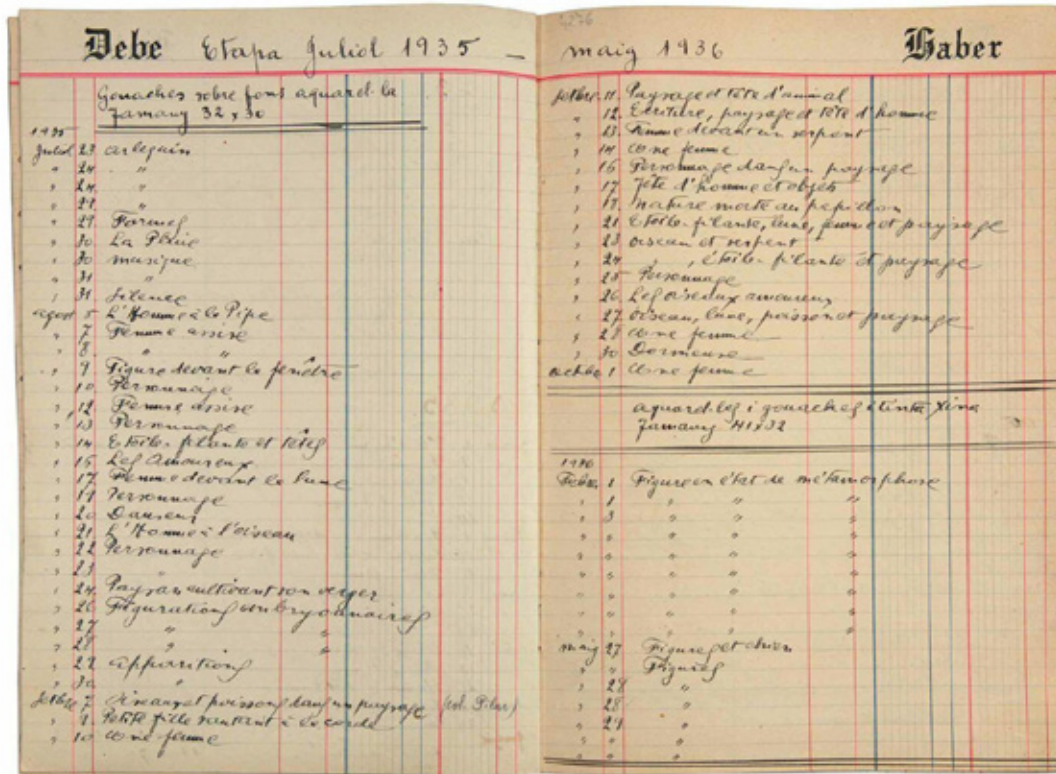 Debe Etapa Juliol 1935 —
Gouaches sobre fons aquarel·la
Tamany 32 x 30
1935
Juliol 23 arlequin
" 24 "
" 24 "
" 29 "
" 29 Formes
" 30 La Pluie
" 30 musique
" 31 "
" 31 Silence
agost 5 L'Homme à la Pipe
" 7 Femme assise
" 8 " "
" 9 Figure devant la fenêtre
" 10 Personnage
" 12 Femme assise
" 13 Personnage
" 14 Etoile-filante et têtes
" 16 Les Amoureux
" 17 Femme devant la lune
" 19 Personnage
" 20 Danseur
" 21 L'Homme à l'oiseau
" 22 Personnage
" 23 "
" 24 Paysan cultivant son verger
" 26 Figurations embryonnaires
" 27 " "
" 28 " "
" 29 apparitions
" 30 "
setbre 7 Oiseau et poisson dans un paysage (col. Pilar)
" 9 Petite fille sautant à la corde
" 10 une femme
4276
maig 1936 Haber
setbre 11 Paysage et tête d'animal
" 12 Ecriture, paysage et tête d'homme
" 13 Femme devant un serpent
" 14 une femme
" 16 Personnage dans un paysage
" 17 Tête d'homme et objets
" 18 nature morte au papillon
" 21 Etoile-filante, lune, femme et paysage
" 23 oiseau et serpent
" 24 " , étoile-filante et paysage
" 25 Personnage
" 26 Les oiseaux amoureux
" 27 oiseau, lune, poisson et paysage
" 28 une femme
" 30 Dormeuse
octbre 1 une femme
aquarel·les i gouaches i tinta xina
Tamany 41 x 32
1936
Febrer 1 Figure en état de métamorphose
" 1 " " "
" 3 " " "
" " " " "
" " " " "
" " " " "
" " " " "
" " " " "
" " " " "
maig 27 Figures et chien
" " Figures
" 28 "
" 28 "
" 29 "
" " "
" " "